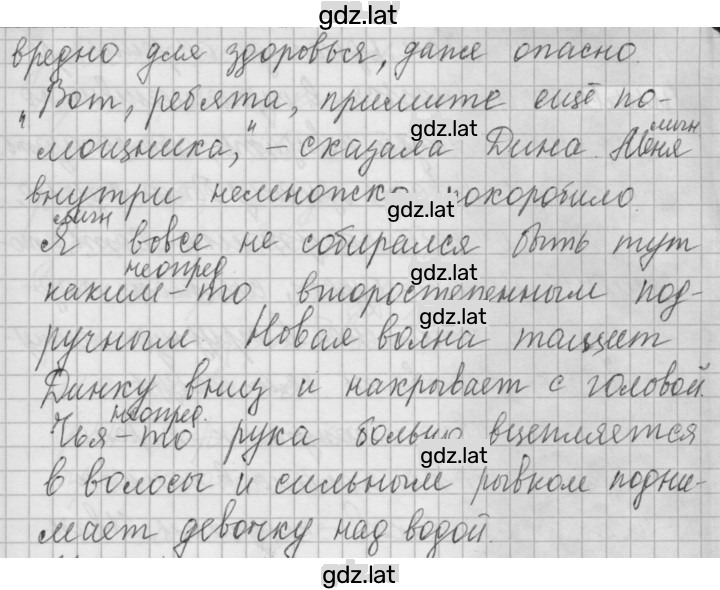 gdz.lat
вредно для здоровья, даже опасно.
„Вот, ребята, примите ещё по-
gdz.lat
личн
мощника,“ – сказала Дина. Меня
внутри немножко покоробило.
gdz.lat
личн
Я вовсе не собирался быть тут
неопред.
gdz.lat
каким-то второстепенным под-
gdz.lat
ручным. Новая волна тащит
Динку вниз и накрывает с головой.
неопред.
Чья-то рука больно вцепляется
gdz.lat
в волосы и сильным рывком подни-
мает девочку над водой.
gdz.lat
gdz.lat